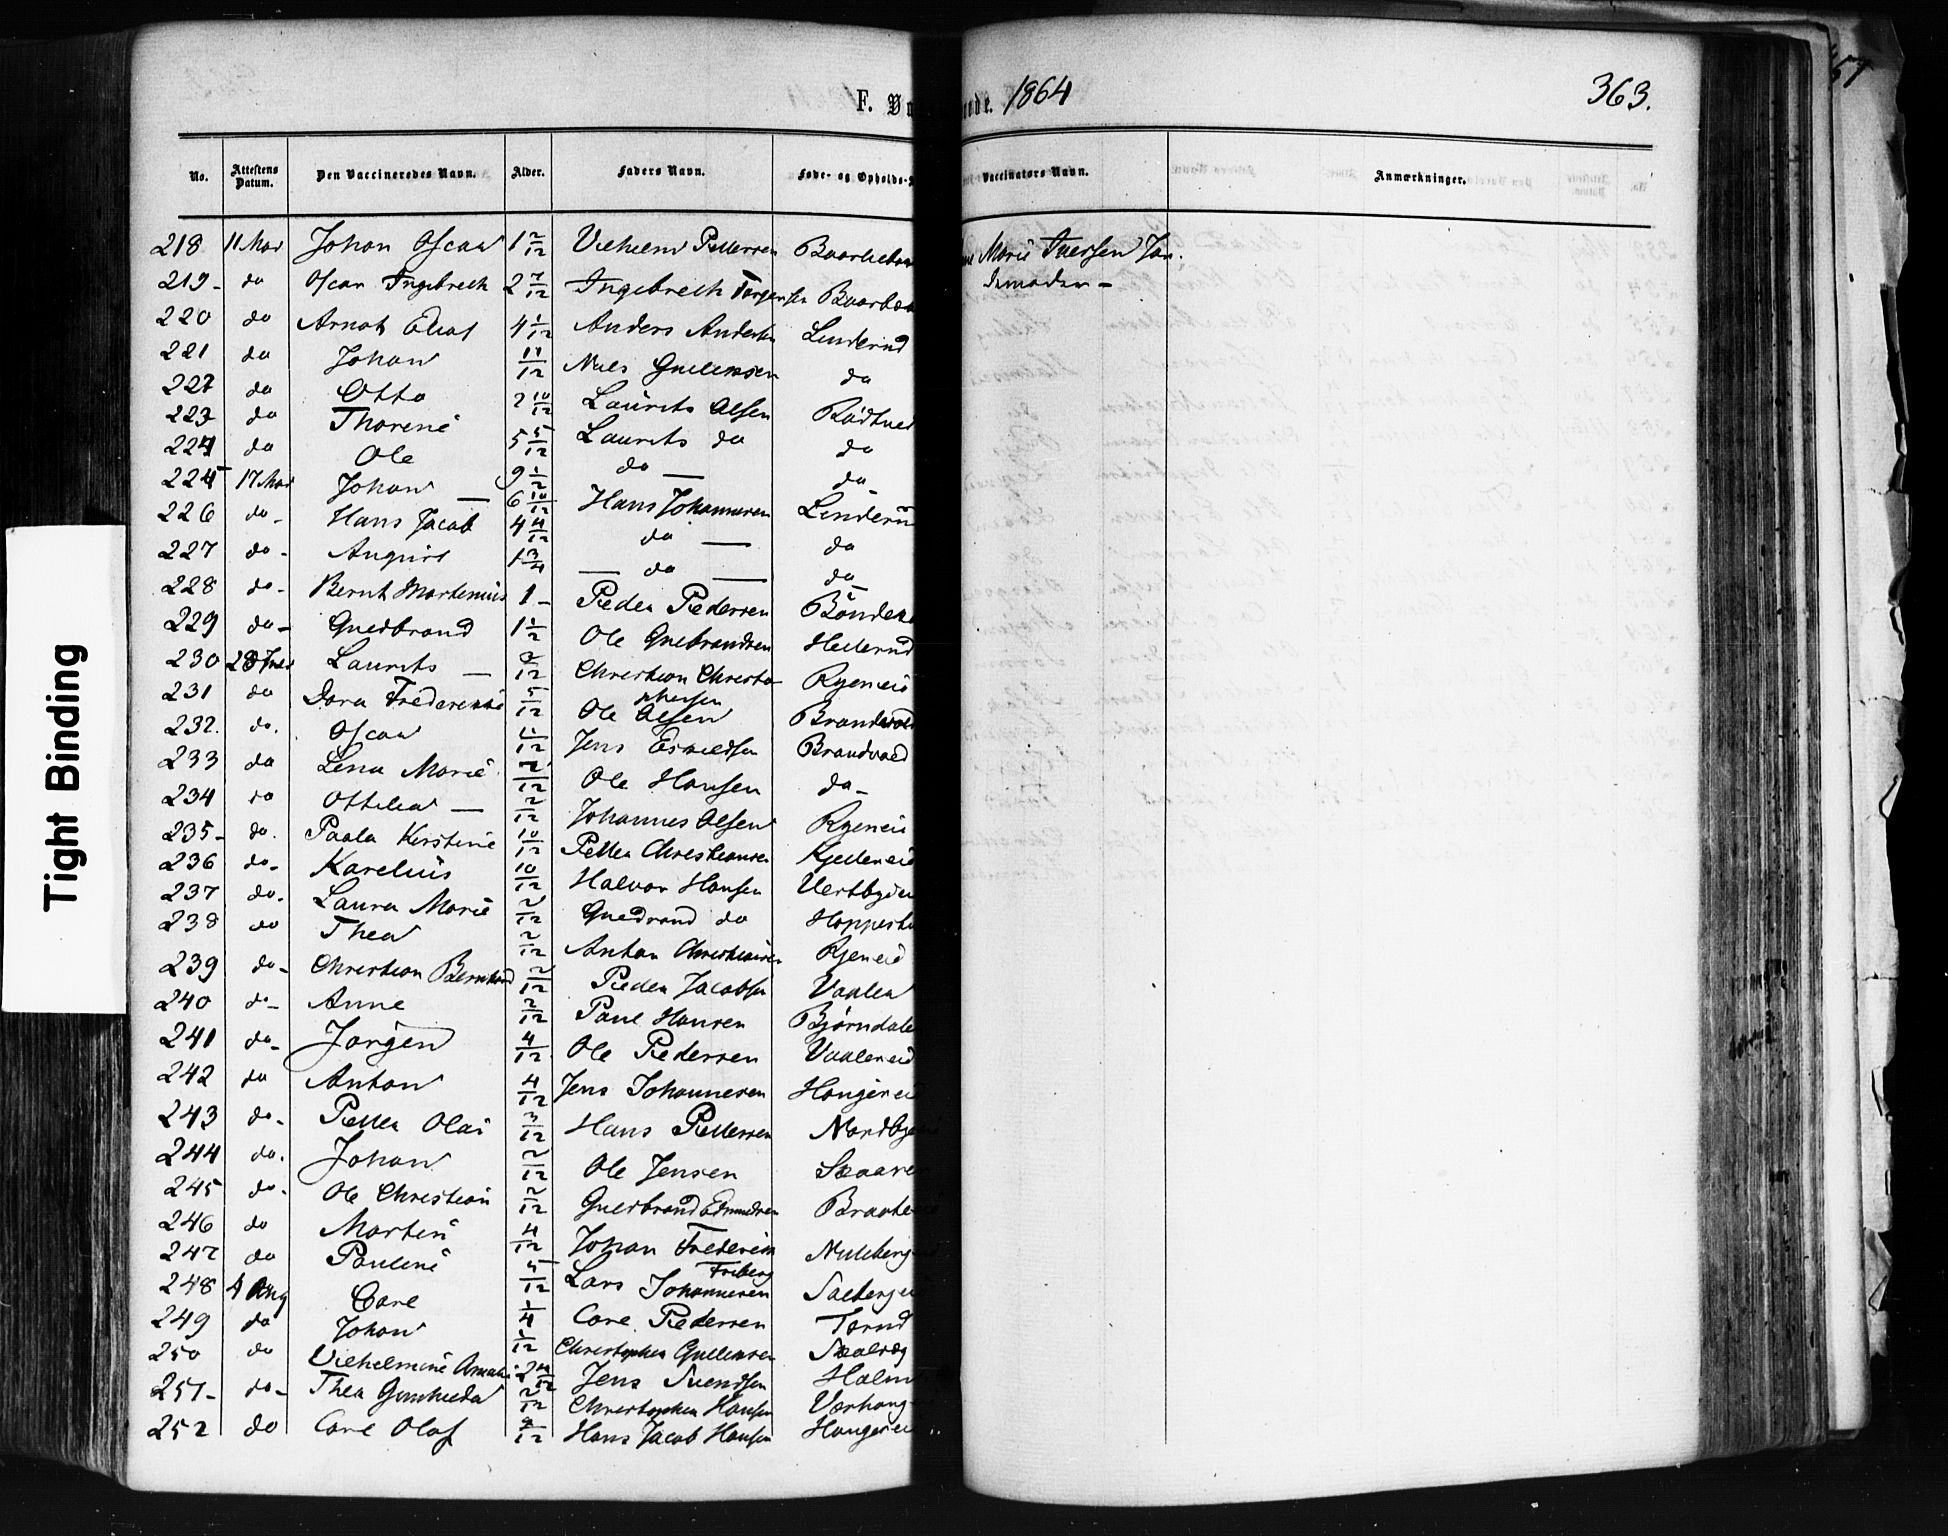 F. Va
ede. 1864
363.
57
Tight Binding
No. Attestens Datum. Den Vaccineredes Navn. Alder. Faders Navn. Føde- og Opholds- Vaccinators Navn. Anmærkninger.
218 11 Mai Johan Oscar 1 2/12 Vilhelm Pettersen Marie Iversen Jor-
219- do Oscar Ingebreth 2 7/12 Ingebreth Torgersen demoder -
220 do Arnot Eliaf 4 1/12 Anders Andersen Linderud
221 do Johan 11/12 Niels Gulliksen do
222 do Otto 2 10/12 Laurits Olsen Rødtved
223 do Thorene 5 5/12 Laurits do do
224 do Ole 9 1/2 do — do
225 17 Mai Johan — 6 10/12 Hans Johannesen Linderu
226 do- Hans Jacob 4 4/12 do — do
227 do- August 1 3/4 — do — do
228 do- Bernt Martinius 1 - Peder Pedersen
229 do- Gulbrand 1 1/2 Ole Gulbrandsen Hellerud
230 28 Juni Laurits — 2/12 Christian Christophersen Ryeneie
231 do Dora Frederikke 5/12 Ole Olsen Brandvold
232. do. Oscar 11/12 Jens Eskildsen Brandvold
233 do Lina Marie 2/12 Ole Hansen do-
234 do Ottilia — 2/12 Johannes Olsen Ryeneie
235- do. Paula Kirstine 10/12 Petter Christiansen
236 do- Karelius 10/12 Halvor Hansen Vestbyei
237 do. Laura Marie 2/12 Gulbrand do
238 do Thea 2/12 Anton Christiansen Ryeneie
239 do- Christian Bernhard 2/12 Peder Jacobsen Vaalen
240 do- Anne 2/12 Paul Hansen Bjørndale
241 do- Jørgen 4/12 Ole Pedersen Vaaleneie
242 do Anton 4/12 Jens Johannesen Haugenei
243 do- Petter Olai 3/12 Hans Pettersen Nordbye
244 do. Johan 2/12 Ole Jensen Skaare
245 do- Ole Christian 2/12 Gulbrand Edmundsen Braate
246 do Martin 4/12 Johan Frederik Friberg
247 do Pauline 5/12 Lars Johannesen
248 4 Aug Carl 1/4 Carl Pedersen
249 do Johan 1/12 Christopher Gulliksen
250 do Vilhelmine Amalie 2 4/12 Jens Svendsen Holm
251- do- Thea Gunhilda 2/12 Christopher Hansen
252 do Carl Olaf 2/12 Hans Jacob Hansen Haugenei